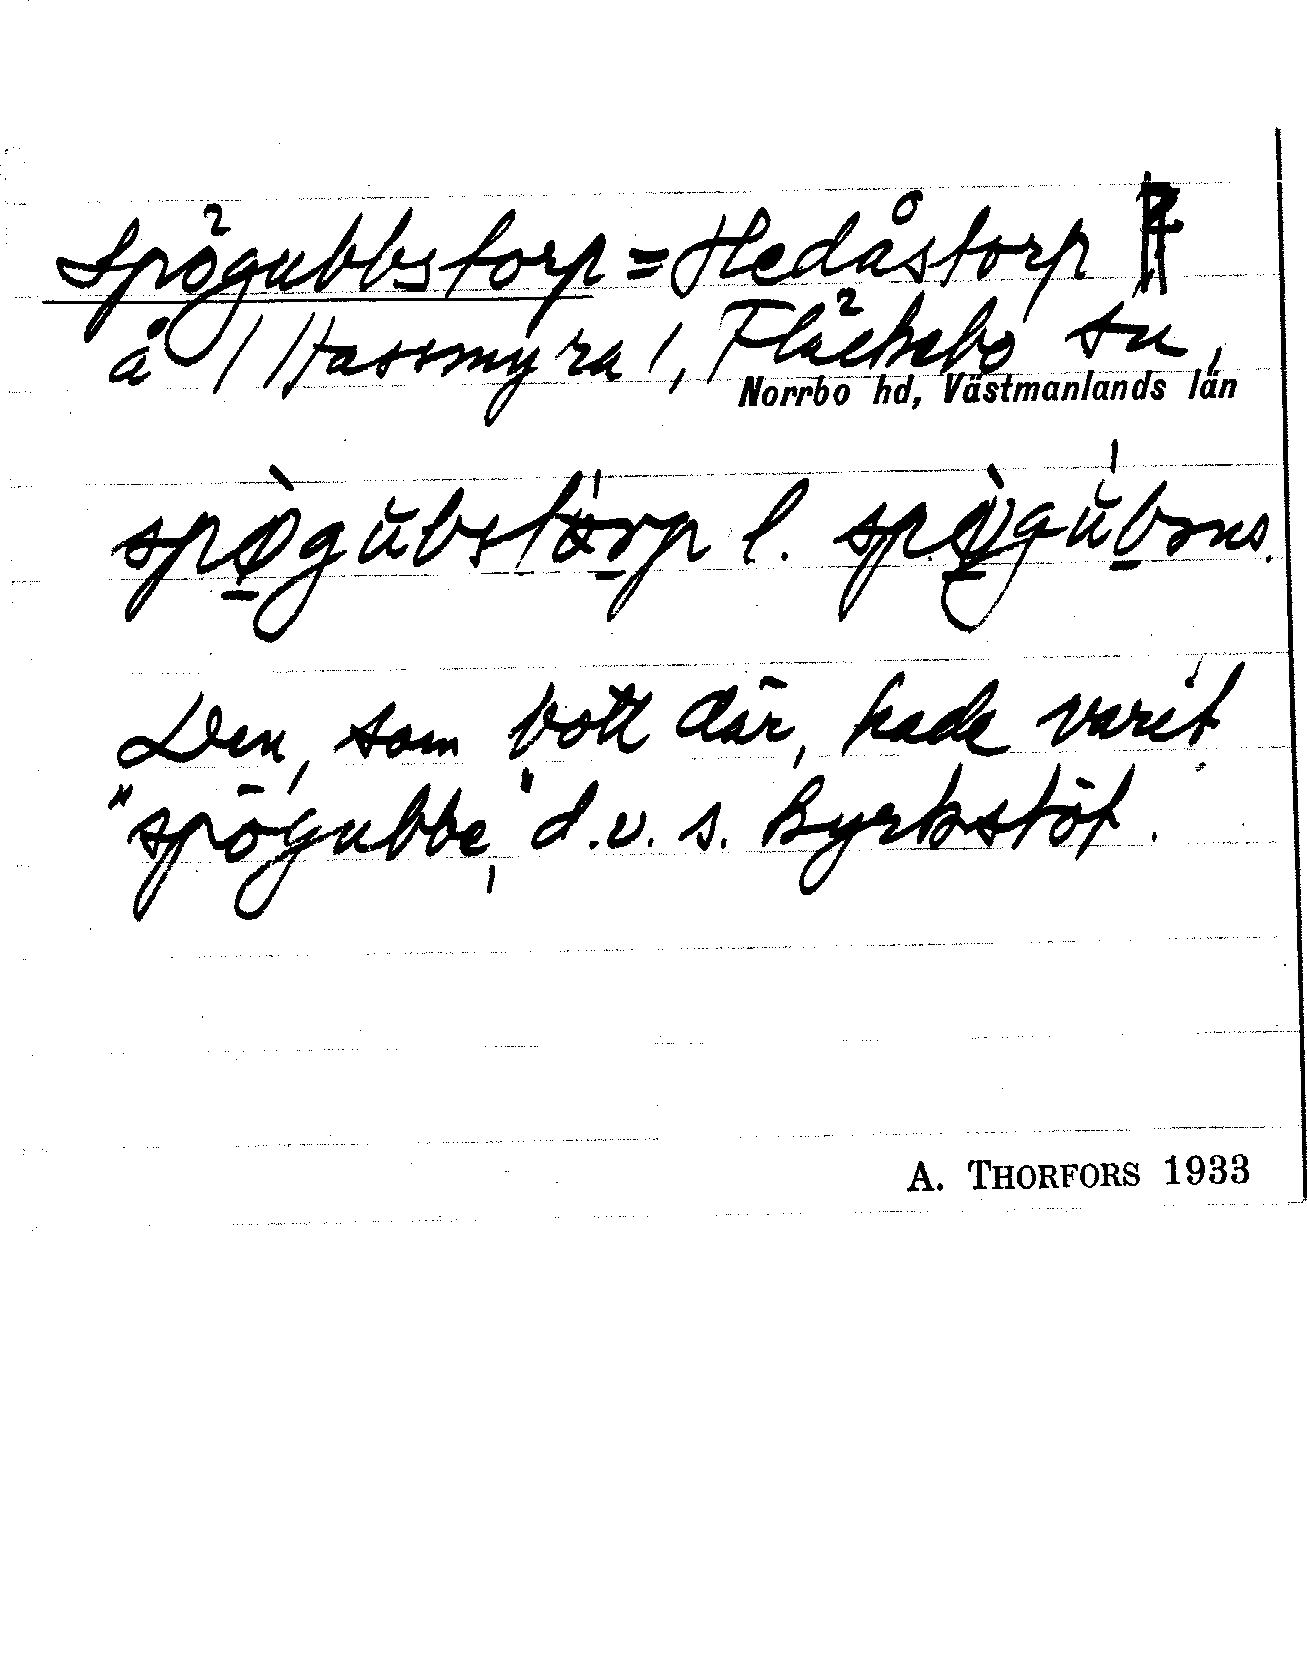 Spögubbstorp = Hedåstorp
å /Hassmyra/, Fläckebo sn,
Norrbo hd, Västmanlands län
spògŭbstorp l. spògŭbens.
Den, som bott där, hade varit
"spögubbe," d.v.s. kyrkstöt.
A. THORFORS 1933